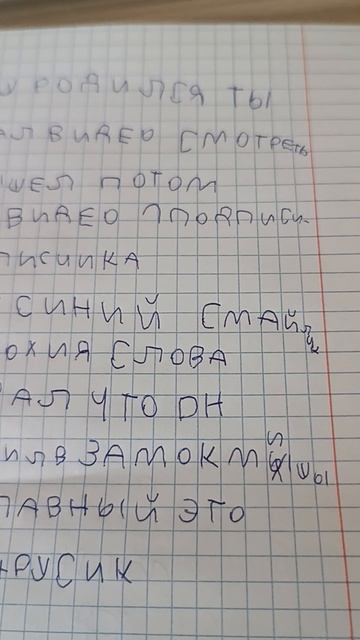 РОДИЛСЯ ТЫ
АЛ ВИДЕО СМОТРЕТЬ
ШЕЛ ПОТОМ
ВИДЕО 1 ПОДПИСИ-
ПИСИИКА
СИНИЙ СМАЙЛИ
ОХИЯ СЛОВА
АЛ ЧТО ОН
ИЛ В ЗАМОК
ЛАВНЫЙ ЭТО
РУСИК